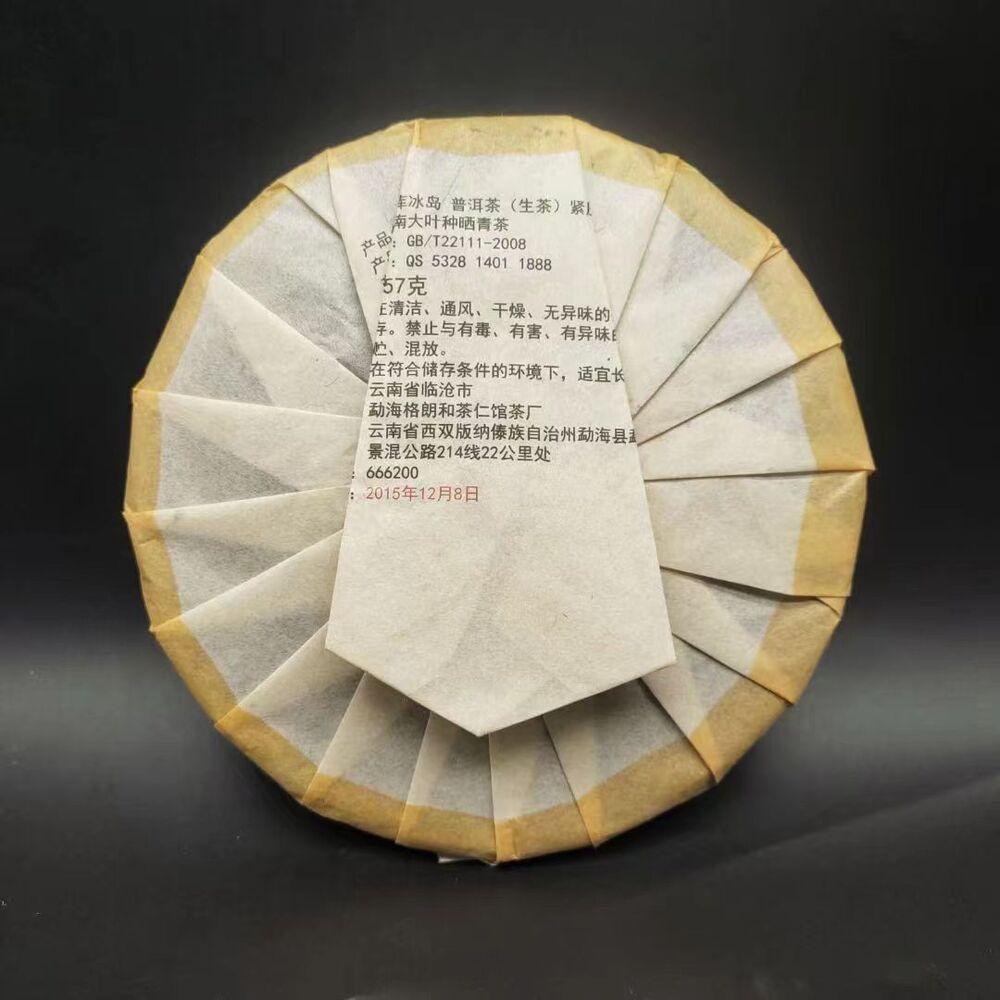 库冰岛 普洱茶（生茶）紧
南大叶种晒青茶
产品：GB/T22111-2008
产：QS 5328 1401 1888
57克
在清洁、通风、干燥、无异味的
存。禁止与有毒、有害、有异味的
贮、混放。
在符合储存条件的环境下，适宜长
云南省临沧市
勐海格朗和茶仁馆茶厂
云南省西双版纳傣族自治州勐海县勐
景混公路214线22公里处
：666200
：2015年12月8日